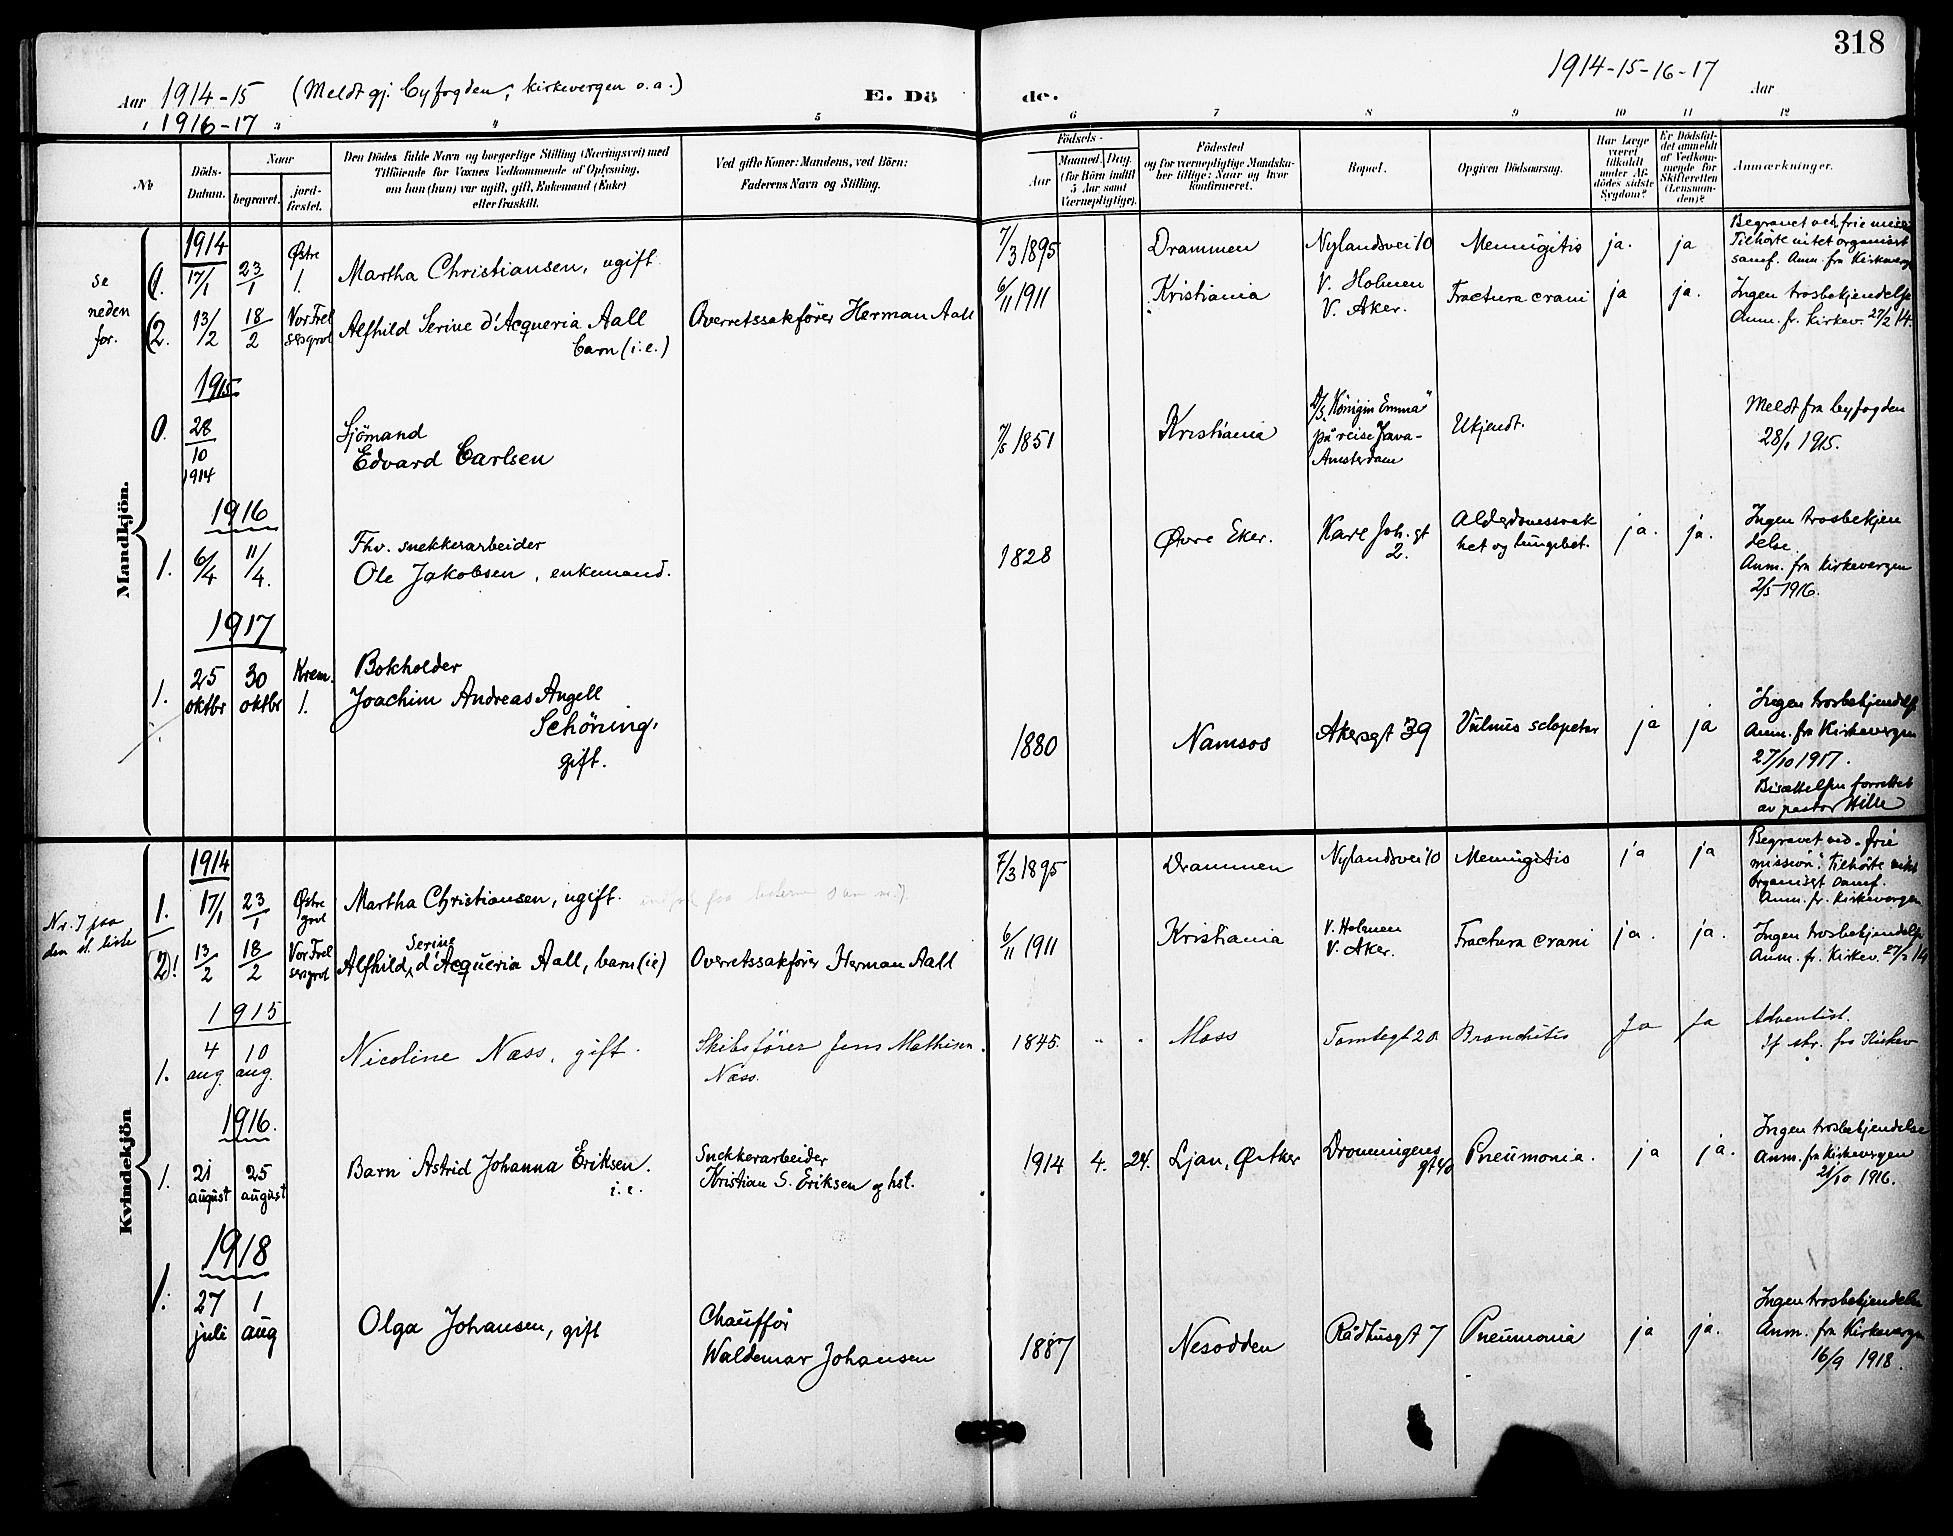 318
Aar 1914-15 (Meldt gj. byfogden, kirkevergen o.a.)
1916-17
E. Dö de.
1914-15-16-17
Aar
3 4 5 6 7 8 9 10 11 12
No
Döds-Datum.
Naar
begravet.
jord-fæstet.
Den Dödes fulde Navn og borgerlige Stilling (Næringsvei) med
Tilföiende for Voxnes Vedkommende af Oplysning,
om han (hun) var ugift, gift, Enkemand (Enke)
eller fraskilt.
Ved gifte Koner: Mandens, ved Börn:
Faderens Navn og Stilling.
Födsels-
Aar
Maaned. Dag.
(for Börn indtil
5 Aar samt
Værnepligtige).
Födested
og for værnepligtige Mandska-
ber tillige: Naar og hvor
konfirmeret.
Bopæl.
Opgiven Dödsaarsag.
Har Læge
været
tilkaldt
under Af-
dödes sidste
Sygdom?
Er Dödsfal-
det anmeldt
af Vedkom-
mende for
Skifteretten
(Lensman-
den)?
Anmærkninger.
Mandkjön.
se
neden
for.
1914
1. 17/1 23/1 Østre 1. Martha Christiansen, ugift. 7/3 1895 Drammen Nylandsvei 10 Meningitis ja. ja
Begravet ved frie miss.
Tilhörte intet organisert
samf. Anm. fra Kirkeverg
2. 13/2 18/2 Vor Frel sersgravl Alfhild Serine d'Acqueria Aall
barn (i.e.)
Overretssakfører Herman Aall 6/11 1911 Kristiania V. Holmen
V. Aker. Fractura crani ja ja.
Ingen trosbekjendelse
Anm. fr. Kirkev. 27/2 14.
1915
0. 28/10 1914 Sjömand
Edvard Carlsen 7/5 1851 Kristiania D/S "Königin Emma"
på reise Java-
Amsterdam Ukjendt.
Meldt fra byfogden
28/1 1915.
1916
1. 6/4 11/4. Fhv. snekkerarbeider
Ole Jakobsen, enkemand. 1828 Øvre Eker. Karl Joh. gt
2. Alderdomssvak
het og lungebet. ja. ja.
Ingen trosbekjen
delse.
Anm. fra kirkevergen
2/5 1916.
1917
1. 25 oktbr 30 oktbr Krem. 1. Bokholder
Joachim Andreas Angell
Schöning,
gift. 1880 Namsos Akersgt 39 Vulnus sclopetar ja ja
Ingen trosbekjendelse
Anm. fra Kirkevergen
27/10 1917.
Bisættelsen forrettet
av pastor Hille
Kvindekjön
Nr. 7 paa
den st. liste
1914
1. 17/1 23/1 Østre gravl Martha Christiansen, ugift. 7/3 1895 Drammen Nylandsvei 10 Meningitis ja ja
Begravet ved "frie
mission". Tilhörte intet
organisert samf.
Anm. fr. Kirkevergen
(2)! 13/2 18/2 Vor Frel sersgravl Alfhild Serine d'Acqueria Aall, barn (ie) Overretssakfører Herman Aall 6/11 1911 Kristiania V. Holmen
V. Aker. Fractura crani ja. ja.
Ingen trosbekjendelse
Anm. fr. Kirkev. 27/2 14
1915
1. 4 aug. 10 aug. Nicoline Næss, gift. Skibsfører Jens Mathisen
Næss. 1845. " " Moss Tomtegt 20 Bronchitis Ja Ja
Adventist.
1916.
1. 21 august 25 august Barn Astrid Johanna Eriksen.
i.e. Snekkerarbeider
Kristian S. Eriksen og hst. 1914 4. 24. Ljan, Øst Aker Dronningens
gt 40 Pneumonia. ja ja.
Ingen trosbekjendelse
Anm. fra Kirkevergen
21/10 1916.
1918
1. 27 juli 1 aug Olga Johansen, gift Chauffør
Waldemar Johansen 1887 Nesodden Rådhusgt 7 Pneumonia ja ja.
Ingen trosbekjendelse
Anm. fra Kirkevergen
16/9 1918.